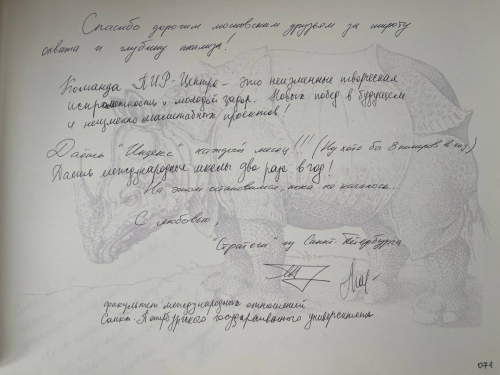 Спасибо дорогим московским друзьям за широту
охвата и глубину анализа!
Команда ПИР-Центра – это неизменные творческая
искрометность и молодой задор. Новых побед в будущем
и неизменно масштабных проектов!
Даешь "Индекс" каждый месяц!!! (Ну хотя бы 8 номеров в год)
Даешь международные школы два раза в год!
На этом остановимся, пока не началось...
С любовью,
"Стратеги" из Санкт-Петербурга
факультет международных отношений
Санкт-Петербургского государственного университета
071